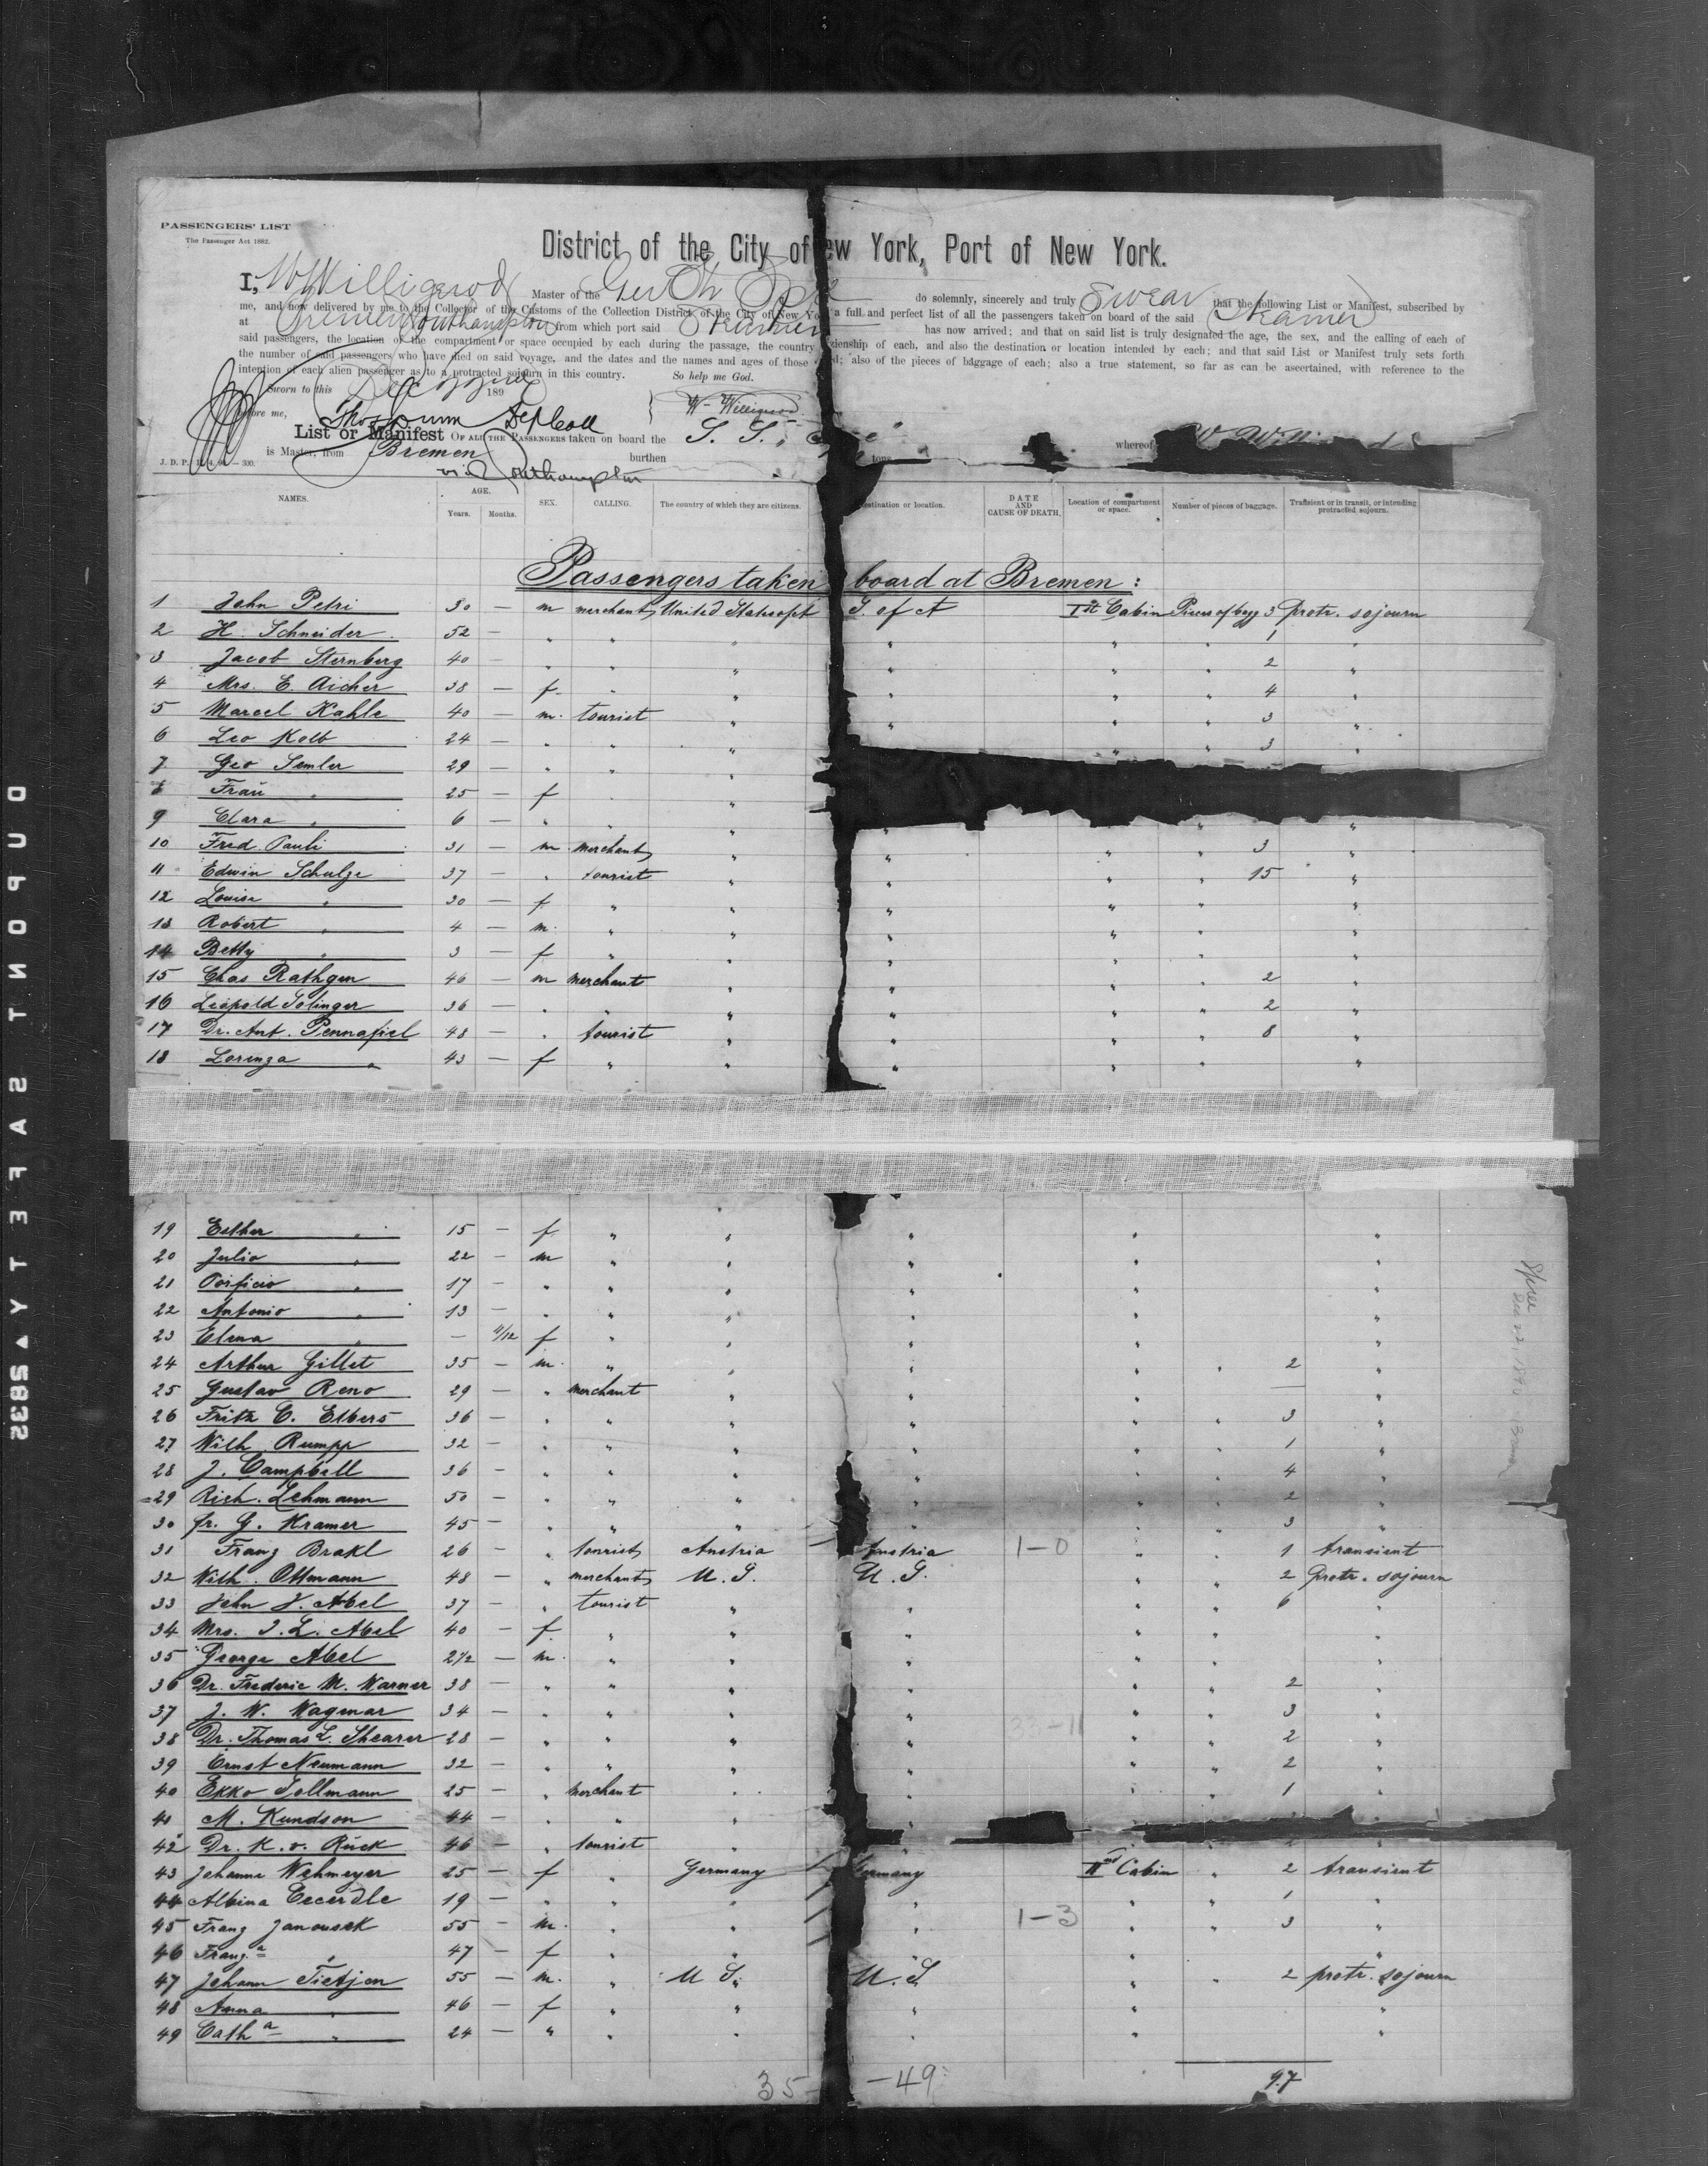 PASSENGERS' LIST
The Passenger Act 1882.
District of the City of ew York, Port of New York.
I, W Willigerod Master of the do solemnly, sincerely and truly Swear that the following List or Manifest, subscribed by
me, and now delivered by me to the Collector of the Customs of the Collection District of the City of New Yo a full and perfect list of all the passengers taken on board of the said Steamer
at Bremen Southampton from which port said Steamer has now arrived; and that on said list is truly designated the age, the sex, and the calling of each of
said passengers, the location of the compartment or space occupied by each during the passage, the country izenship of each, and also the destination or location intended by each; and that said List or Manifest truly sets forth
the number of said passengers who have died on said voyage, and the dates and the names and ages of those d; also of the pieces of baggage of each; also a true statement, so far as can be ascertained, with reference to the
intention of each alien passenger as to a protracted sojourn in this country. So help me God.
Sworn to this Dec 22nd 189
before me, W. Willigerod
List or Manifest OF ALL THE PASSENGERS taken on board the S. S. whereof W Willi d
is Master, from Bremen burthen tons
via Southampton
NAMES. AGE. Years. Months. SEX. CALLING. The country of which they are citizens. estination or location. DATE AND CAUSE OF DEATH. Location of compartment or space. Number of pieces of baggage. Transient or in transit, or intending protracted sojourn.
Passengers taken board at Bremen :
1 John Petri 30 — m merchant United States of A S. of A Ist Cabin Pieces of bagg 3 protr. sojourn
2 H. Schneider 52 — " " " " " " 1 "
3 Jacob Sternberg 40 — " " " " " " 2 "
4 Mrs. E. Aicher 38 — f " " " " " 4 "
5 Marcel Kahle 40 — m. tourist " " " " 3 "
6 Leo Kolb 24 — " " " " " 3 "
7 Geo Semler 29 — " " "
8 Frau " 25 — f " "
9 Clara " 6 — " " " " " "
10 Fred. Pauli 31 — m merchant " " " " 3 "
11 Edwin Schulze 37 — " tourist " " " " 15 "
12 Louise " 30 — f " " " " " "
13 Robert " 4 — m. " " " " " "
14 Betty " 3 — f " " " " " "
15 Chas Rathgen 46 — m merchant " " " " 2 "
16 Leopold Solinger 36 — " " " " " " 2 "
17 Dr. Ant. Pennafiel 48 — " tourist " " " " 8 "
18 Lorenza " 43 — f " " " " " "
19 Esther " 15 — f. " " " " "
20 Julio " 22 — m " " " " "
21 Porficio " 17 — " " " " " "
22 Antonio " 13 — " " " " " "
23 Elena " — 11/12 f " " " " "
24 Arthur Gillet 35 — m. " " " " " 2 "
25 Gustav Reno 29 — " merchant " " " — "
26 Fritz C. Elbers 36 — " " " " " " 3 "
27 Wilh. Rumpp 32 — " " " " " 1 "
28 J. Campbell 36 — " " " " " " 4 "
29 Rich. Lehmann 50 — " " " " " " 2 "
30 fr. G. Kramer 45 — " " " " " 3 "
31 Franz Brakl 26 — " tourist Austria Austria 1-0 " " 1 transient
32 Wilh. Ottmann 48 — " merchant U. S. U. S. " " 2 protr. sojourn
33 John J. Abel 37 — " tourist " " " " 6 "
34 Mrs. J. L. Abel 40 — f. " " " " " "
35 George Abel 2½ — m. " " " " " "
36 Dr. Frederic M. Warner 38 — " " " " " " 2 "
37 J. W. Wagenar 34 — " " " " " " 3 "
38 Dr. Thomas L. Shearer 28 — " " " " " " 2 "
39 Ernst Neumann 32 — " " " " " " 2 "
40 Ekko Sollmann 25 — " merchant " " " " 1 "
41 M. Kundson 44 — " " " "
42 Dr. K. v. Rück 46 — " tourist "
43 Johanne Wehmeyer 25 — f " Germany Germany IInd Cabin " 2 transient
44 Albina 19 — " " " " " " 1 "
45 Franz Janousek 55 — m. " " " 1-3 " " 3 "
46 Franz.a " 47 — f " " " " "
47 Johann Tietjen 55 — m. " U S. U. S. " " 2 protr. sojourn
48 Anna " 46 — f " " " " "
49 Cath a " 24 — " " " " " "
35 - 49 97
Spree
Dec 22 1890 Bremen
DUPONT SAFETY 2832